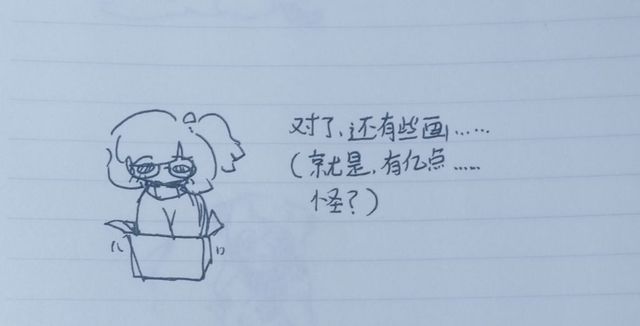 对了、还有些画……
(就是、有亿点……
怪?)